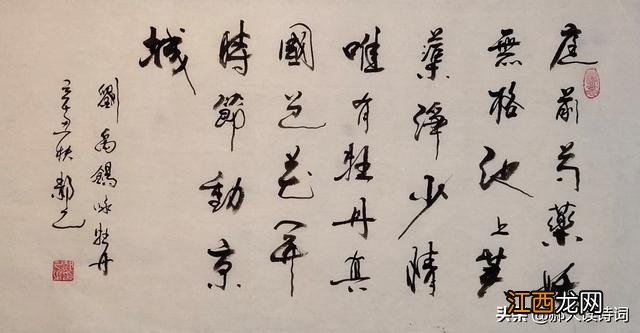 庭前芍藥妖
無格池上芙
蕖淨少情
唯有牡丹真
國色花開
時節動京
城
劉禹錫咏牡丹
辛丑秋
江西龙网
头条 @郝人读诗词